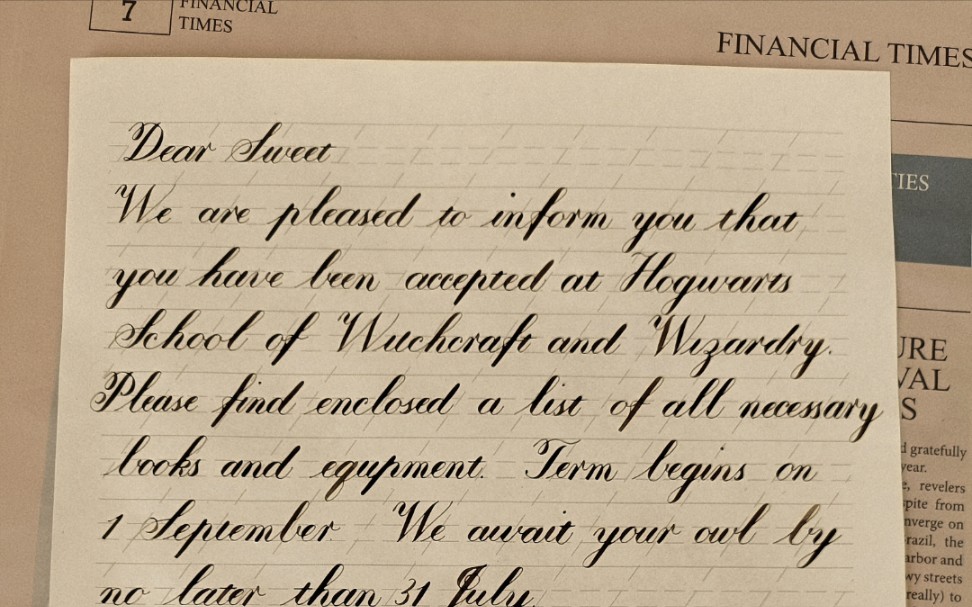 7
FINANCIAL
TIMES
FINANCIAL TIMES
Dear Sweet
We are pleased to inform you that
you have been accepted at Hogwarts
School of Witchcraft and Wizardry.
Please find enclosed a list of all necessary
books and equpment. Term begins on
1 September We await your owl by
no later than 31 July.
TIES
URE
VAL
S
d gratefully
year.
e, revelers
spite from
nverge on
razil, the
arbor and
wy streets
really) to